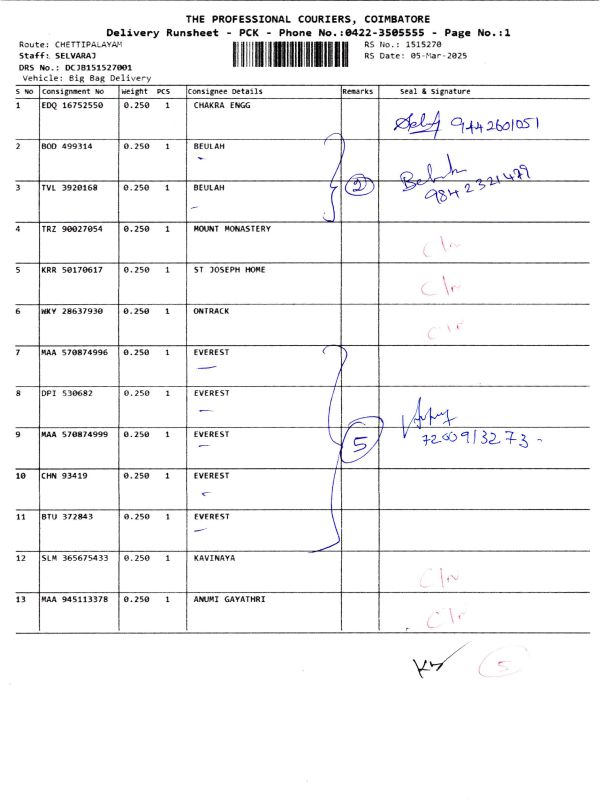 THE PROFESSIONAL COURIERS, COIMBATORE
Delivery Runsheet - PCK - Phone No.:0422-3505555 - Page No.:1
Route: CHETTIPALAYAM RS No.: 1515270
Staff: SELVARAJ RS Date: 05-Mar-2025
DRS No.: DCJB151527001
Vehicle: Big Bag Delivery
S No Consignment No Weight PCS Consignee Details Remarks Seal & Signature
1 EDQ 16752550 0.250 1 CHAKRA ENGG
9442601051
2 BOD 499314 0.250 1 BEULAH
3 TVL 3920168 0.250 1 BEULAH 2
9842321479
4 TRZ 90027054 0.250 1 MOUNT MONASTERY
5 KRR 50170617 0.250 1 ST JOSEPH HOME
6 WKY 28637930 0.250 1 ONTRACK
7 MAA 570874996 0.250 1 EVEREST
8 DPI 530682 0.250 1 EVEREST
9 MAA 570874999 0.250 1 EVEREST 5
7200913273
10 CHN 93419 0.250 1 EVEREST
11 BTU 372843 0.250 1 EVEREST
12 SLM 365675433 0.250 1 KAVINAYA
13 MAA 945113378 0.250 1 ANUMI GAYATHRI
5